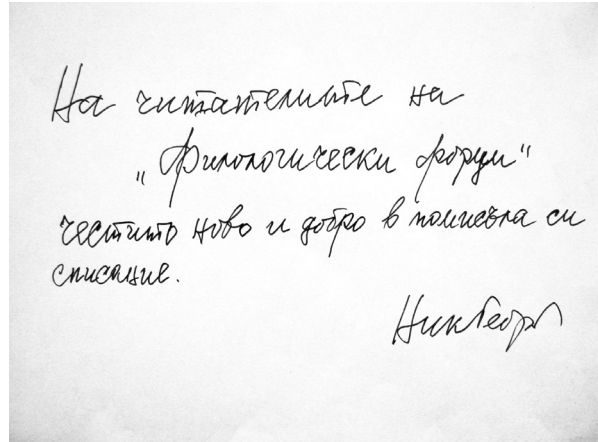 На читателите на
„Филологически форум“
честито ново и добро в помисъла си
списание.
НикГеорг